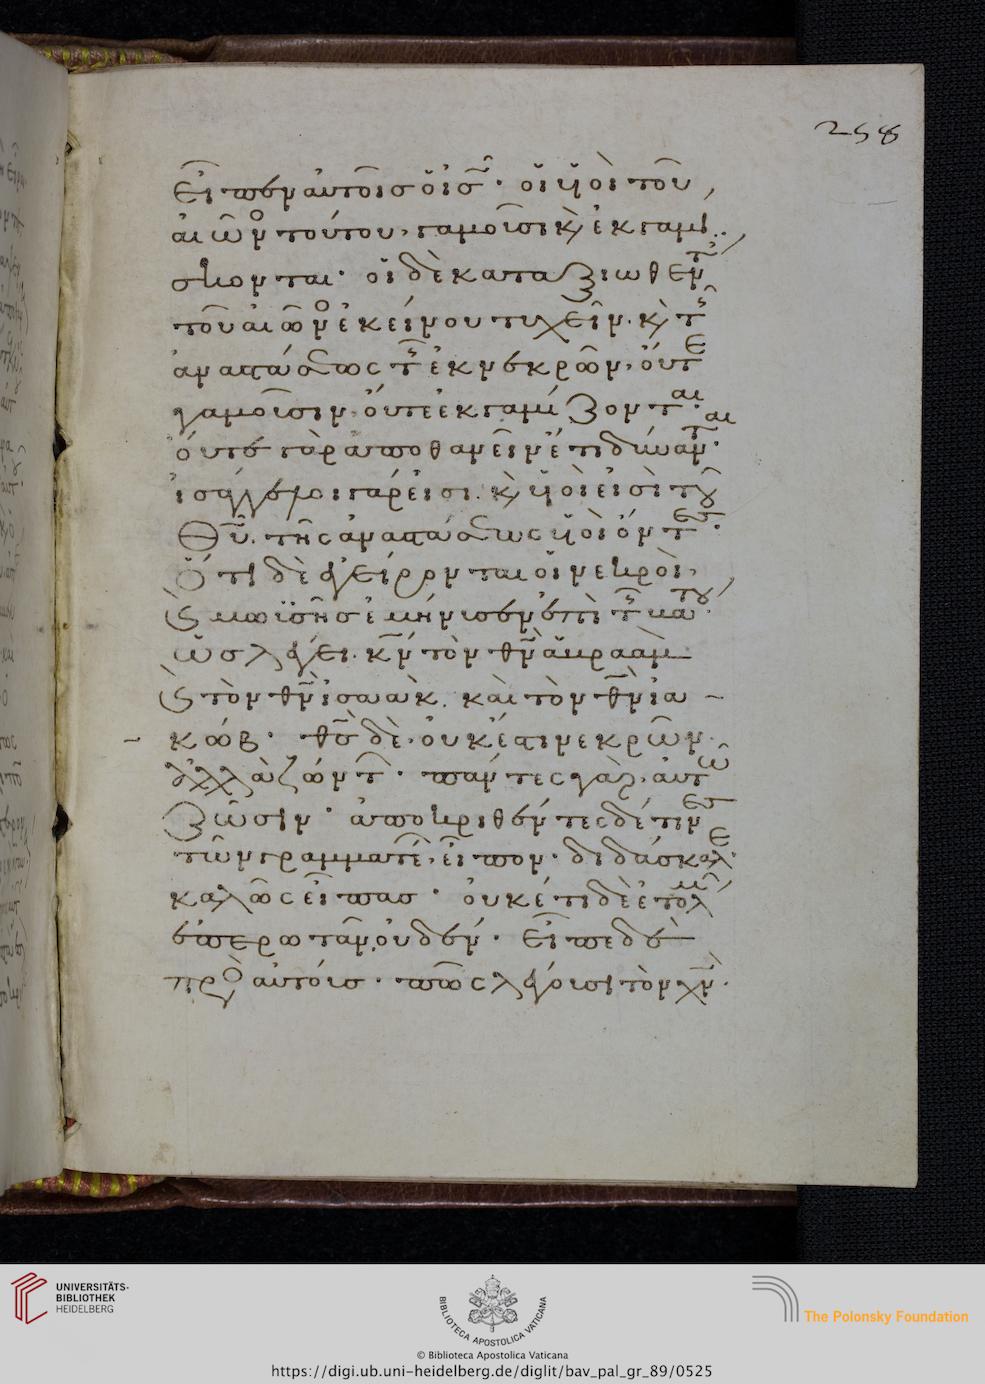 258
εἶπεν αὐτοῖς ὁ ἰς̅· οἱ υἱοὶ τοῦ
αἰῶνος τούτου, γαμοῦσι κ̀ ἐκγαμί
σκονται· οἱ δὲ καταξιωθέντ
τοῦ αἰῶνος ἐκείνου τυχεῖν. κ̀ τῆς
ἀναστάσεως τῆς ἐκ νεκρῶν, οὔτε
γαμοῦσιν, οὔτε ἐκγαμίζονται·
οὔτε γὰρ ἀποθανεῖν ἔτι δύνανται·
ἰσάγγελοι γάρ εἰσι. κ̀ υἱοὶ εἰσὶ τοῦ
θυ̅. τῆς ἀναστάσεως υἱοὶ ὄντες·
Ὅτι δὲ ἐγείρονται οἱ νεκροὶ,
κ̀ μωϋσῆς ἐμήνυσεν ἐπὶ τῆς βάτου·
ὡς λέγει. κν̅ τὸν θν̅ ἀβραὰμ
κ̀ τὸν θν̅ ἰσαὰκ. καὶ τὸν θν̅ ἰα
κώβ· θς̅ δὲ, οὐκ ἔστι νεκρῶν
ἀλλὰ ζώντων· πάντες γὰρ, αὐτῶ
ζῶσιν· ἀποκριθέντες δέ τινες
τῶν γραμματέων, εἶπον· διδάσκαλε·
καλῶς εἶπας· οὐκέτι δὲ ἐτόλμων
ἐπερωτᾶν, οὐδέν· εἶπε δὲ
πρὸς αὐτούς· πῶς λέγουσι τὸν χν̅·
UNIVERSITÄTS-
BIBLIOTHEK
HEIDELBERG
BIBLIOTECA APOSTOLICA VATICANA
© Biblioteca Apostolica Vaticana
The Polonsky Foundation
https://digi.ub.uni-heidelberg.de/diglit/bav_pal_gr_89/0525